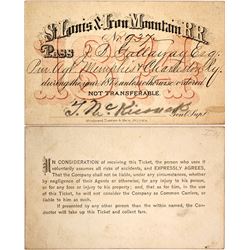 St. Louis & Iron Mountain RR.
No. 737
Pass
Memphis & Charleston Ry.
during the year unless otherwise ordered
NOT TRANSFERABLE.
Gen'l Supt.
IN CONSIDERATION of receiving this Ticket, the person who uses it
voluntarily assumes all risk of accidents, and EXPRESSLY AGREES,
That the Company shall not be liable, under any circumstances, whether
by negligence of their Agents or otherwise, for any injury to his person,
or for any loss or injury to his property; and that, as for him, in the use
of this Ticket, he will not consider the Company as Common Carriers, or
liable to him as such.
If presented by any other person than the within named, the Con-
ductor will take up this Ticket and collect fare.